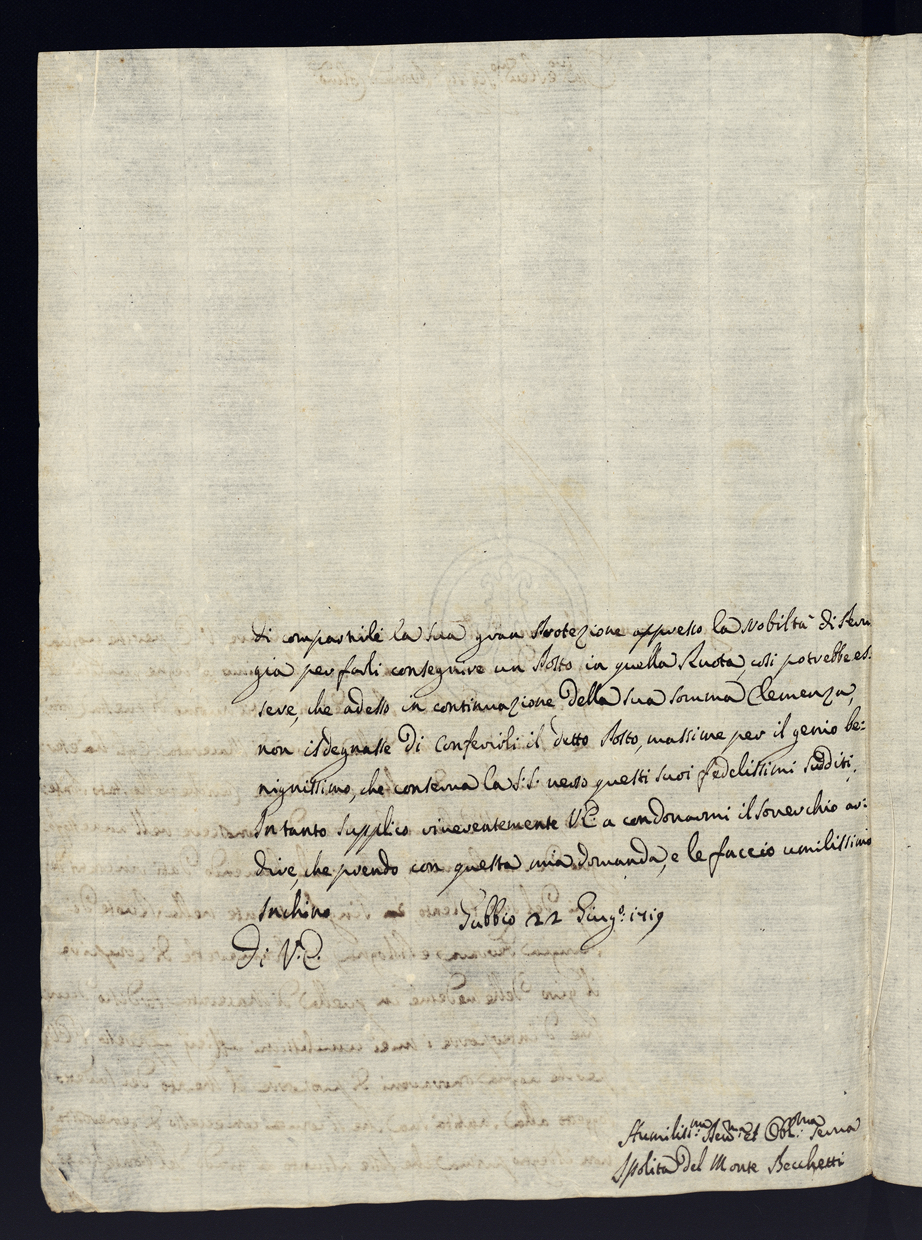 di compartile la sua gran Protezione appresso la Nobiltà di Peru
gia per farli conseguire un Posto in quella Ruota, cosi potrebbe es:
sere, che adesso in continuazione della sua somma Clemenza,
non isdegnasse di conferirli il detto Posto, massime per il genio be:
nignissimo, che conserva la S.S. verso questi suoi fedelissimi sudditi.
Intanto supplico riverentemente V.E. a condonarmi il soverchio ar:
dire, che prendo con questa mia domanda, e le faccio umilissimo
Inchino
Gubbio 22 Giug.o 1719
Di V.E.
Humiliss.ma Dev.ma et Obbl.ma Serva
Ipolita del Monte Becchetti